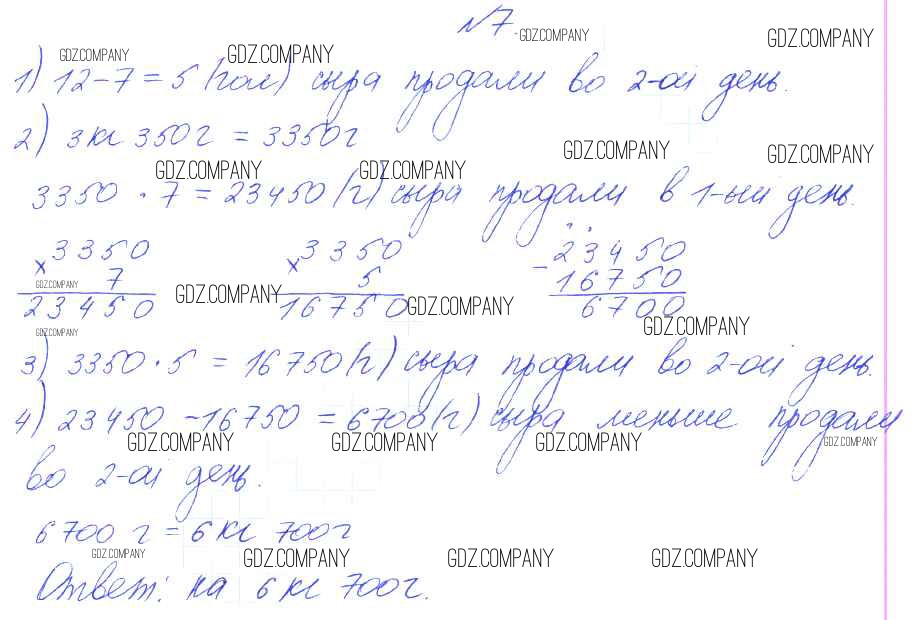 №7
1) 12 - 7 = 5 (гол) сыра продали во 2-ой день.
2) 3 кг 350 г = 3350 г
3350 · 7 = 23450 (г) сыра продали в 1-ый день.
×3350 ×3350 -23450
7 5 16750
23450 16750 6700
3) 3350 · 5 = 16750 (г) сыра продали во 2-ой день.
4) 23450 - 16750 = 6700 (г) сыра меньше продали
во 2-ой день.
6700 г = 6 кг 700 г
Ответ: на 6 кг 700 г.
GDZ.COMPANY GDZ.COMPANY GDZ.COMPANY GDZ.COMPANY
GDZ.COMPANY GDZ.COMPANY
GDZ.COMPANY GDZ.COMPANY
GDZ.COMPANY GDZ.COMPANY GDZ.COMPANY
GDZ.COMPANY GDZ.COMPANY
GDZ.COMPANY GDZ.COMPANY GDZ.COMPANY GDZ.COMPANY
GDZ.COMPANY GDZ.COMPANY GDZ.COMPANY GDZ.COMPANY